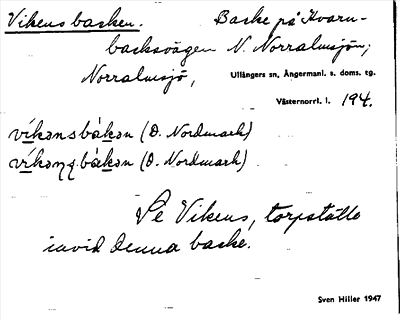 Vikens backen. Backe på Kvarn-
backsvägen N. Norralmsjön;
Norralmsjö, Ullångers sn, Ångermanl. s. doms. tg.
Västernorrl. l. 194.
víkənsbàkən (D. Nordmark)
víkəŋbàkən (D. Nordmark)
Se Vikens, torpställe
invid denna backe.
Sven Hiller 1947